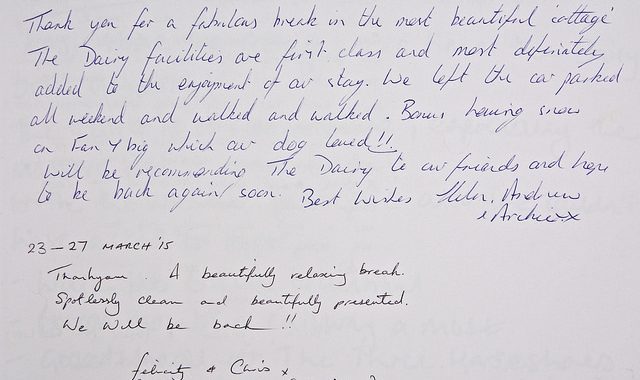 Thank you for a fabulous break in the most beautiful 'cottage'
The Dairy facilities are first class and most definately
added to the enjoyment of our stay. We left the car parked
all weekend and walked and walked. Bonus having snow
on Fan y big which our dog loved!!
Will be recommending The Dairy to our friends and hope
to be back again soon. Best Wishes Helen, Andrew
& Archie x
23-27 MARCH '15
Thankyou. A beautifully relaxing break.
Spotlessly clean and beautifully presented.
We will be back !!
Felicity & Chris x